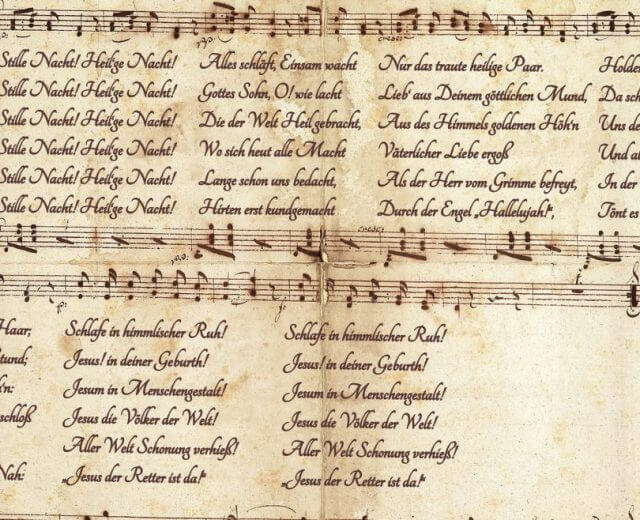 Stille Nacht! Heil'ge Nacht! Alles schläft, Einsam wacht Nur das traute heilige Paar. Holdes
Stille Nacht! Heil'ge Nacht! Gottes Sohn, O! wie lacht Lieb' aus Deinem göttlichen Mund, Da sch
Stille Nacht! Heil'ge Nacht! Die der Welt Heil gebracht, Aus des Himmels goldenen Höh'n Uns de
Stille Nacht! Heil'ge Nacht! Wo sich heut alle Macht Väterlicher Liebe ergoß Und al
Stille Nacht! Heil'ge Nacht! Lange schon uns bedacht, Als der Herr vom Grimme befreyt, In der
Stille Nacht! Heil'ge Nacht! Hirten erst kundgemacht Durch der Engel „Hallelujah!“, Tönt es
Haar; Schlafe in himmlischer Ruh! Schlafe in himmlischer Ruh!
tund; Jesus! in deiner Geburth! Jesus! in deiner Geburth!
h'n: Jesum in Menschengestalt! Jesum in Menschengestalt!
schloß Jesus die Völker der Welt! Jesus die Völker der Welt!
Aller Welt Schonung verhieß! Aller Welt Schonung verhieß!
Nah: „Jesus der Retter ist da!“ „Jesus der Retter ist da!“